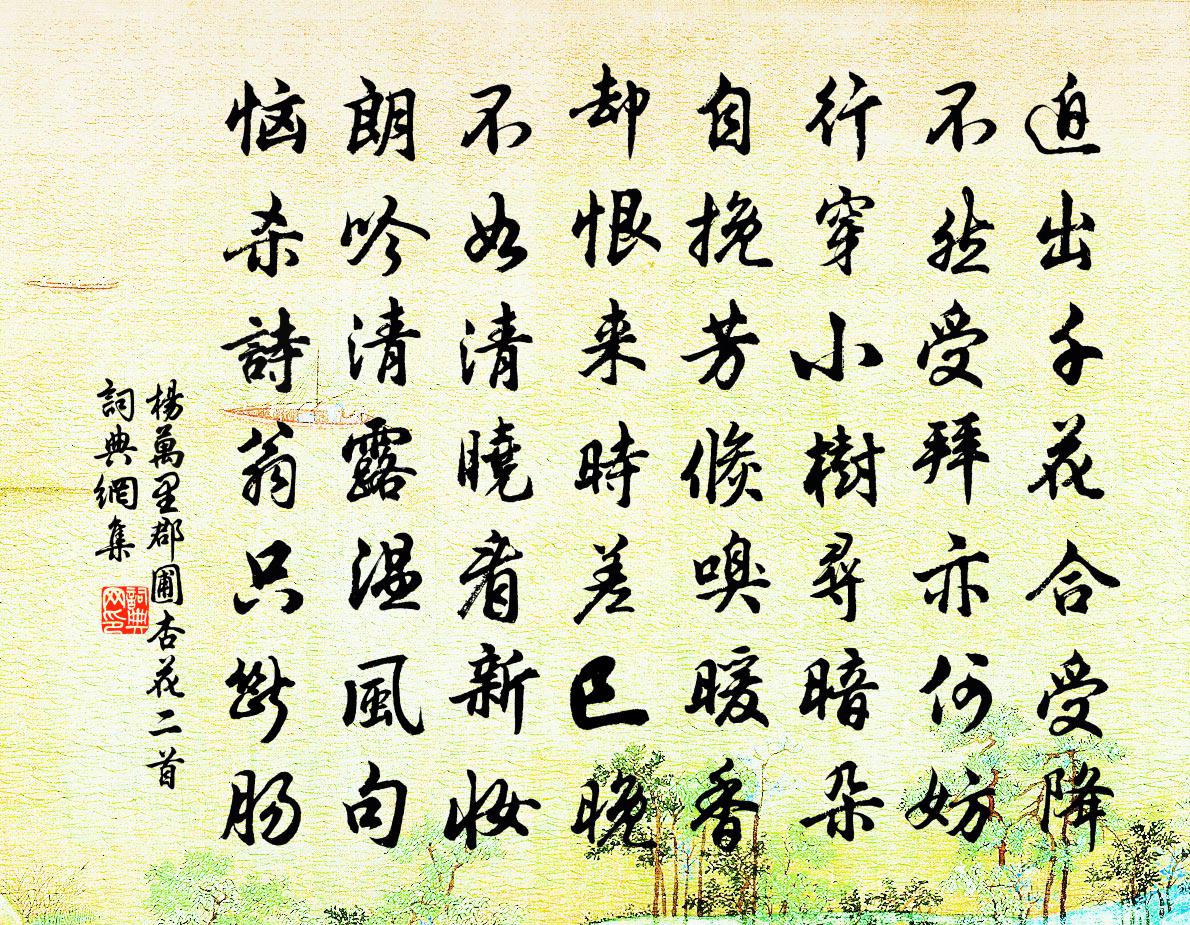 迫出千花合受降
不然受拜亦何妨
行穿小樹尋暗朵
自挽芳條嗅暖香
却恨来時差已晚
不如清曉看新妝
朗吟清露濕風句
恼杀詩翁只斷肠
楊萬里郡圃杏花二首
詞典網集
詞典网印